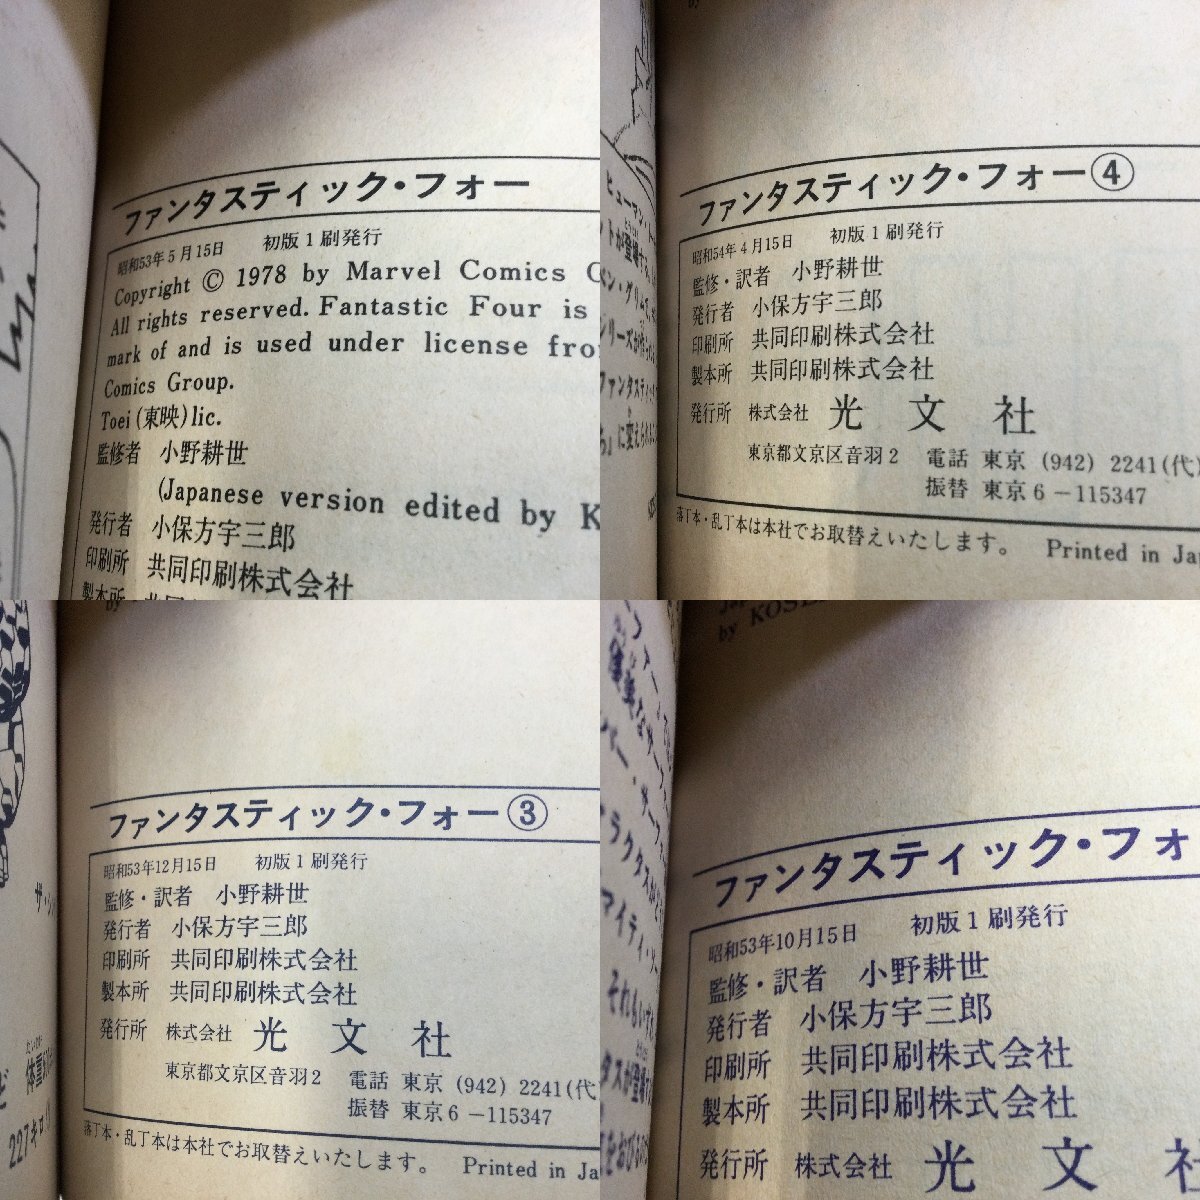 ファンタスティック・フォー
昭和53年5月15日 初版1刷発行
Copyright © 1978 by Marvel Comics
All rights reserved. Fantastic Four is
mark of and is used under license
Comics Group.
Toei (東映) lic.
監修者 小野耕世
(Japanese version edited by
発行者 小保方宇三郎
印刷所 共同印刷株式会社
製本所
ファンタスティック・フォー④
昭和54年4月15日 初版1刷発行
監修・訳者 小野耕世
発行者 小保方宇三郎
印刷所 共同印刷株式会社
製本所 共同印刷株式会社
発行所 株式会社 光文社
東京都文京区音羽2 電話 東京 (942) 2241(代)
振替 東京6-115347
落丁本・乱丁本は本社でお取替えいたします。 Printed in
ファンタスティック・フォー③
昭和53年12月15日 初版1刷発行
監修・訳者 小野耕世
発行者 小保方宇三郎
印刷所 共同印刷株式会社
製本所 共同印刷株式会社
発行所 株式会社 光文社
東京都文京区音羽2 電話 東京 (942) 2241(代
振替 東京6-115347
落丁本・乱丁本は本社でお取替えいたします。 Printed in
体重
227キロ
by
ファンタスティック・フォ
昭和53年10月15日 初版1刷発行
監修・訳者 小野耕世
発行者 小保方宇三郎
印刷所 共同印刷株式会社
製本所 共同印刷株式会社
発行所 株式会社 光文社